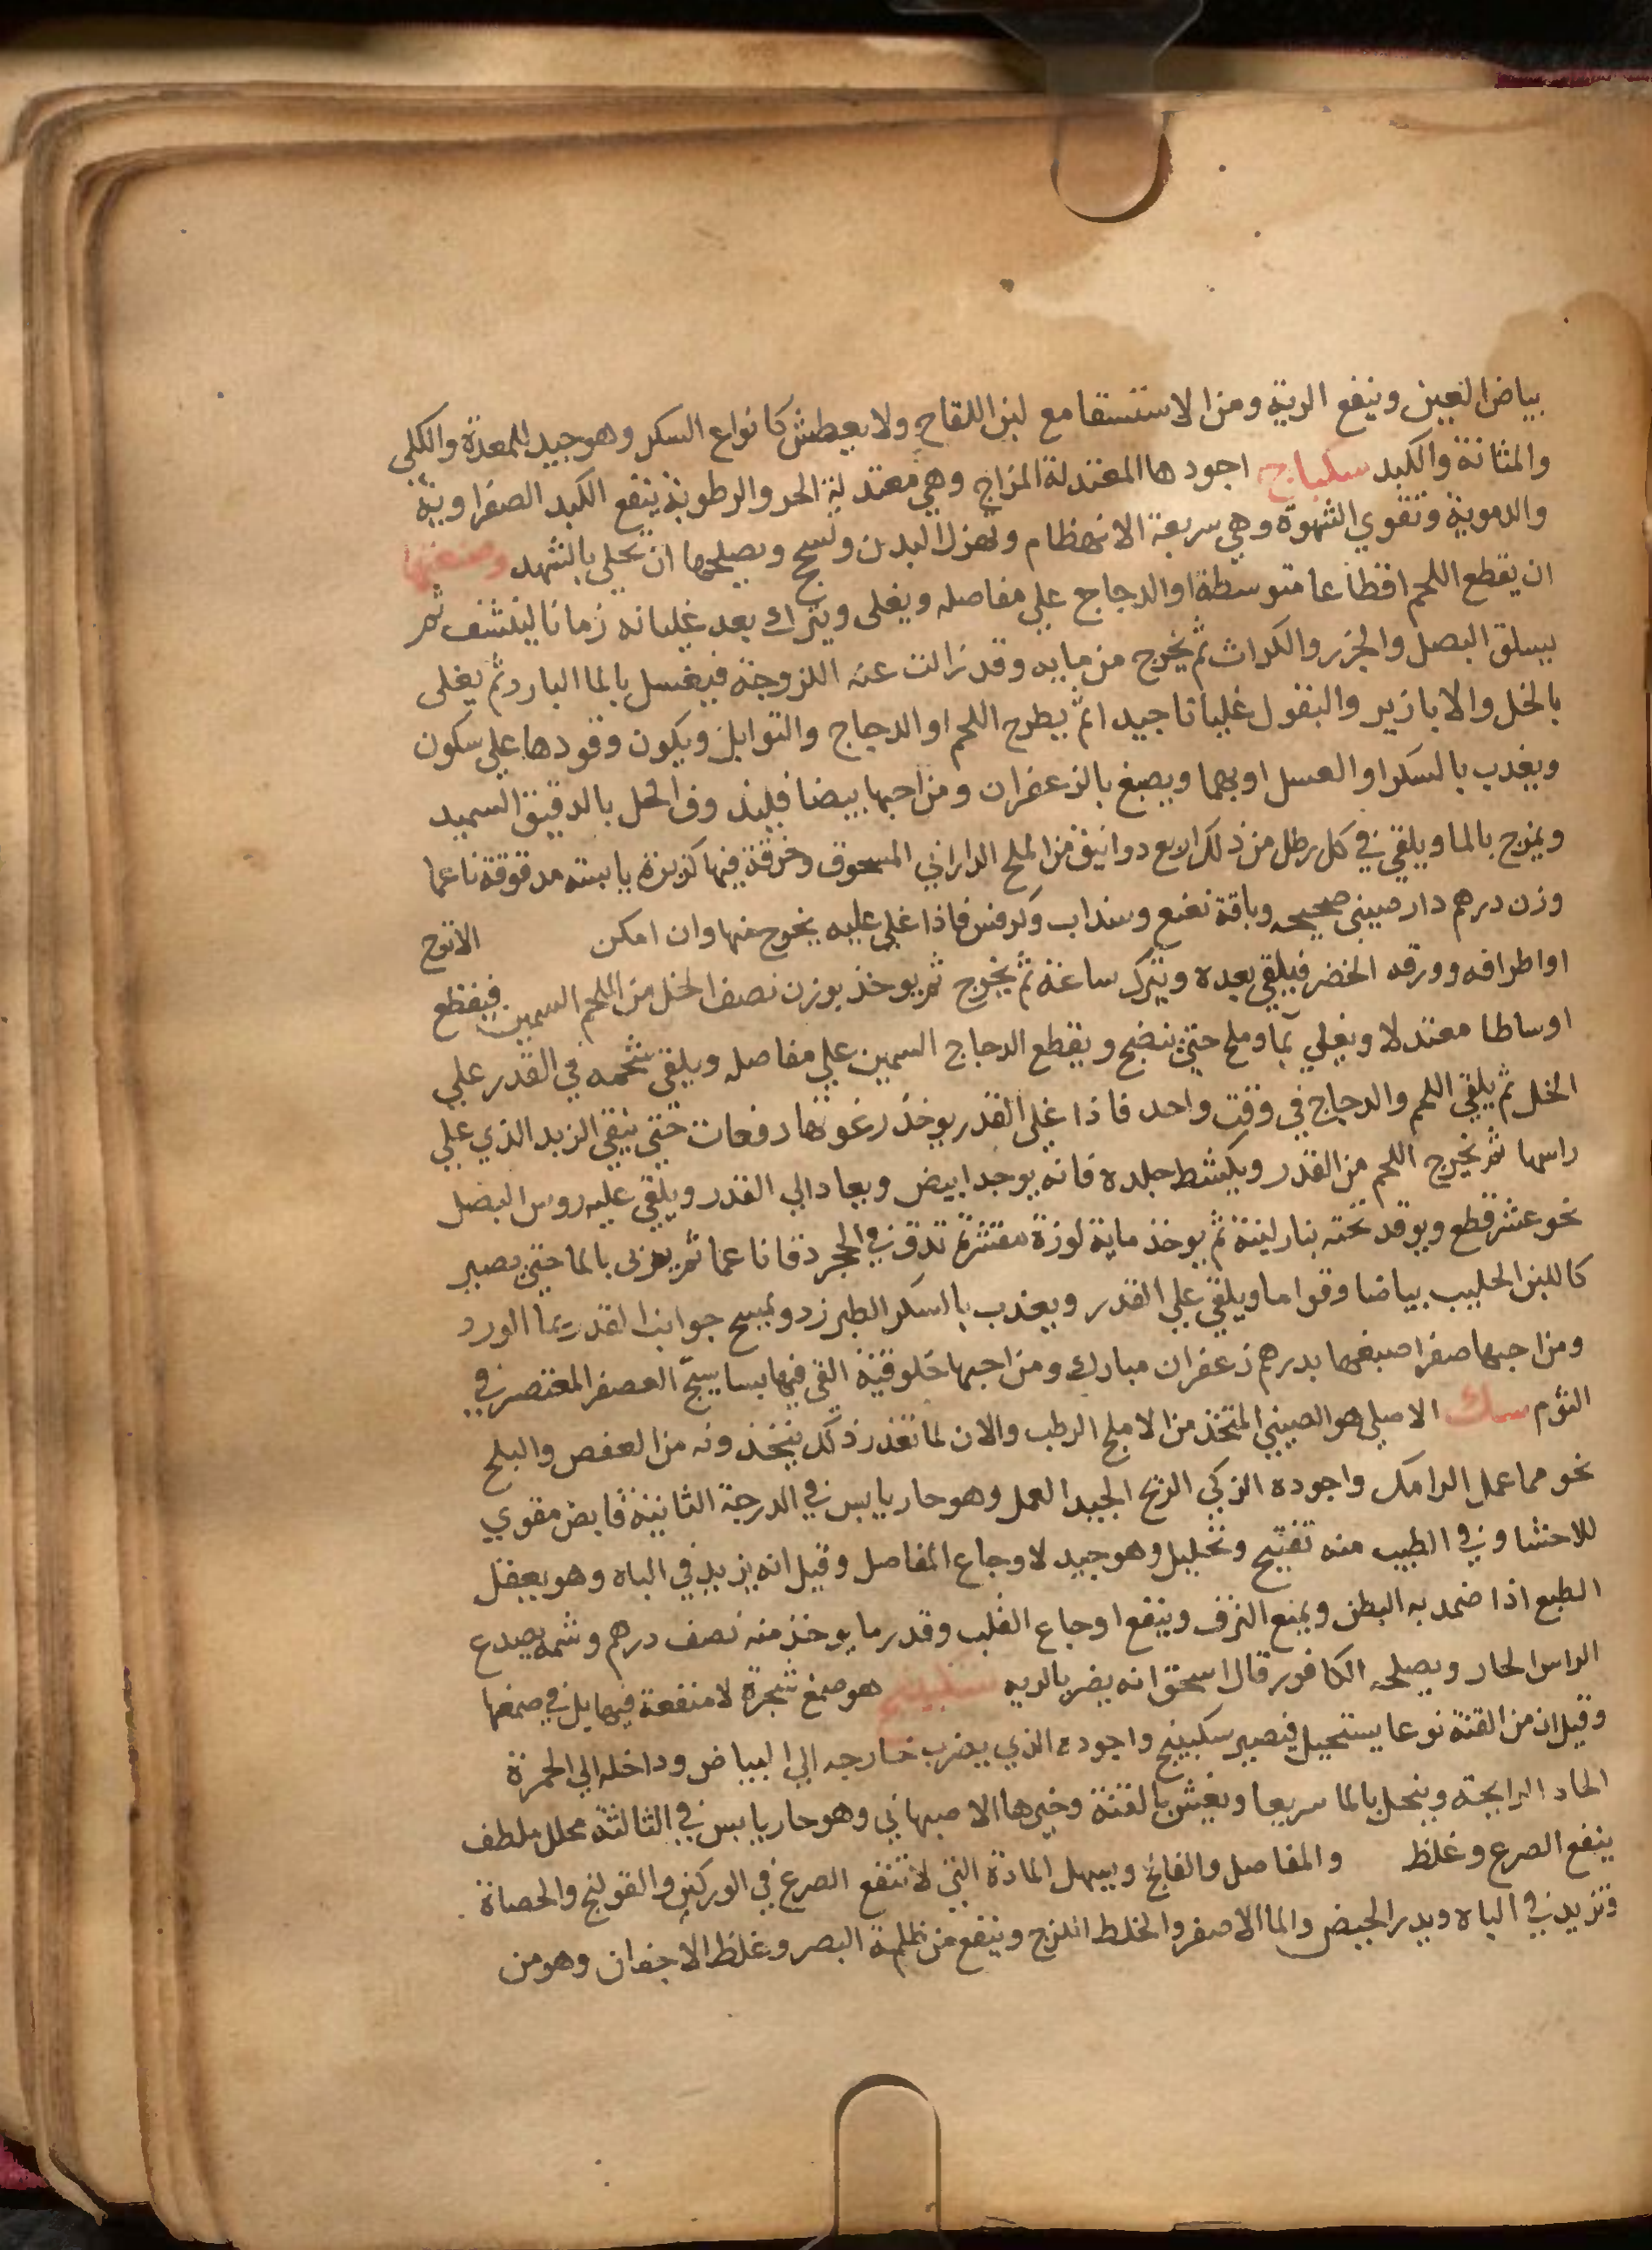 بياض العين وينفع الرية ومن الاستسقا مع لبن اللقاح ولا يعطش كانواع السكر وهو جيد للمعدة والكلي
والمثانة والكبد سكباج اجودها المعتدلة المزاج وهي معتدلة الحر والرطوبة ينفع الكبد الصفراوية
والدموية وتقوي الشهوة وهي سريعة الانهظام وتهزل البدن وتسحج ويصلحها ان تحلي بالشهد وصنعتها
ان يقطع اللحم اقطاعا متوسطة او الدجاج علي مفاصله ويغلى ويترك بعد غليانه زمانا لينشف ثم
يسلق البصل والجزر والكراث ثم يخرج من مايه وقد زالت عنه اللزوجة فيغسل بالما البارد ثم يغلى
بالخل والابازير والبقول غليانا جيدا ثم يطرح اللحم او الدجاج والتوابل ويكون وقودها علي سكون
ويعذب بالسكر او العسل او بهما ويصبغ بالزعفران ومن احبها بيضا فليذوف الخل بالدقيق السميد
ويمزج بالما ويلقي في كل رطل من ذلك اربع دوانيق من الملح الداراني المسحوق وخرقة فيها كزبرة يابسته مدقوقة ناعما
وزن درهم دارصيني صحيحه وباقة نعنع وسنداب وكرفس فاذا غلي عليه يخرج منها وان امكن الاترج
او اطرافه وورقه الخضر فيلقي بعده ويترك ساعة ثم يخرج ثم يوخذ بوزن نصف الخل من اللحم السمين فيقطع
اوساطا معتدلا ويغلي بما وملح حتي ينضج ويقطع الدجاج السمين علي مفاصله ويلقي شحمه في القدر علي
الخل ثم يلقي اللحم والدجاج في وقت واحد فاذا غلى القدر يوخذ رغوتها دفعات حتي ينقي الزبد الذي علي
راسها ثم يخرج اللحم من القدر ويكشط جلده فانه يوجد ابيض ويعاد الي القدر ويلقي عليه روس البصل
نحو عشر قطع ويوقد تحته بنار لينة ثم يوخذ ماية لوزة مقشرة تدق في الحجر دقا ناعما ثم يمزى بالما حتي يصير
كاللبن الحليب بياضا وقواما ويلقي علي القدر ويعذب بالسكر الطبرزد ويمسح جوانب القدر بما الورد
ومن احبها صفرا صبغها بدرهم زعفران مبارك ومن احبها خلوقية القي فيها بسايسج العصفر المعتصر في
الثوم سك الاصلي هو الصيني المتخذ من الاملج الرطب والان لما تعذر ذلك يتخذونه من العفص والبلح
نحو مما عمل الرامك واجوده الزكي الريح الجيد العمل وهو حار يابس في الدرجة الثانية قابض مقوي
للاحشا وفي الطبيب منه تفتيح وتحليل وهو جيد لاوجاع المفاصل وقيل انه يزيد في الباه وهو يعقل
الطبع اذا ضمد به البطن ويمنع النزف وينفع اوجاع القلب وقدر ما يوخذ منه نصف درهم وشمه يصدع
الراس الحار ويصلحه الكافور قال اسحق انه يضر بالريه سكبينج هو صمغ شجرة لا منفعة فيها بل في صمغها
وقيل ان من القنة نوعا يستحيل فيصير سكبينج واجوده الذي يضرب خارجه الي البياض وداخله الي الحمرة
الحاد الرايحة وينحل بالما سريعا ويغش بالقنة وخيرها الاصبهاني وهو حار يابس في الثالثة محلل ملطف
ينفع الصرع وغلظ والمفاصل والفالج ويسهل المادة التي لا تنفع الصرع في الوركين والقولنج والحصاة
وتزيد في الباه ويدر الحيض والما الاصفر والخلط اللزج وينفع من ظلمة البصر وغلظ الاجفان وهو من